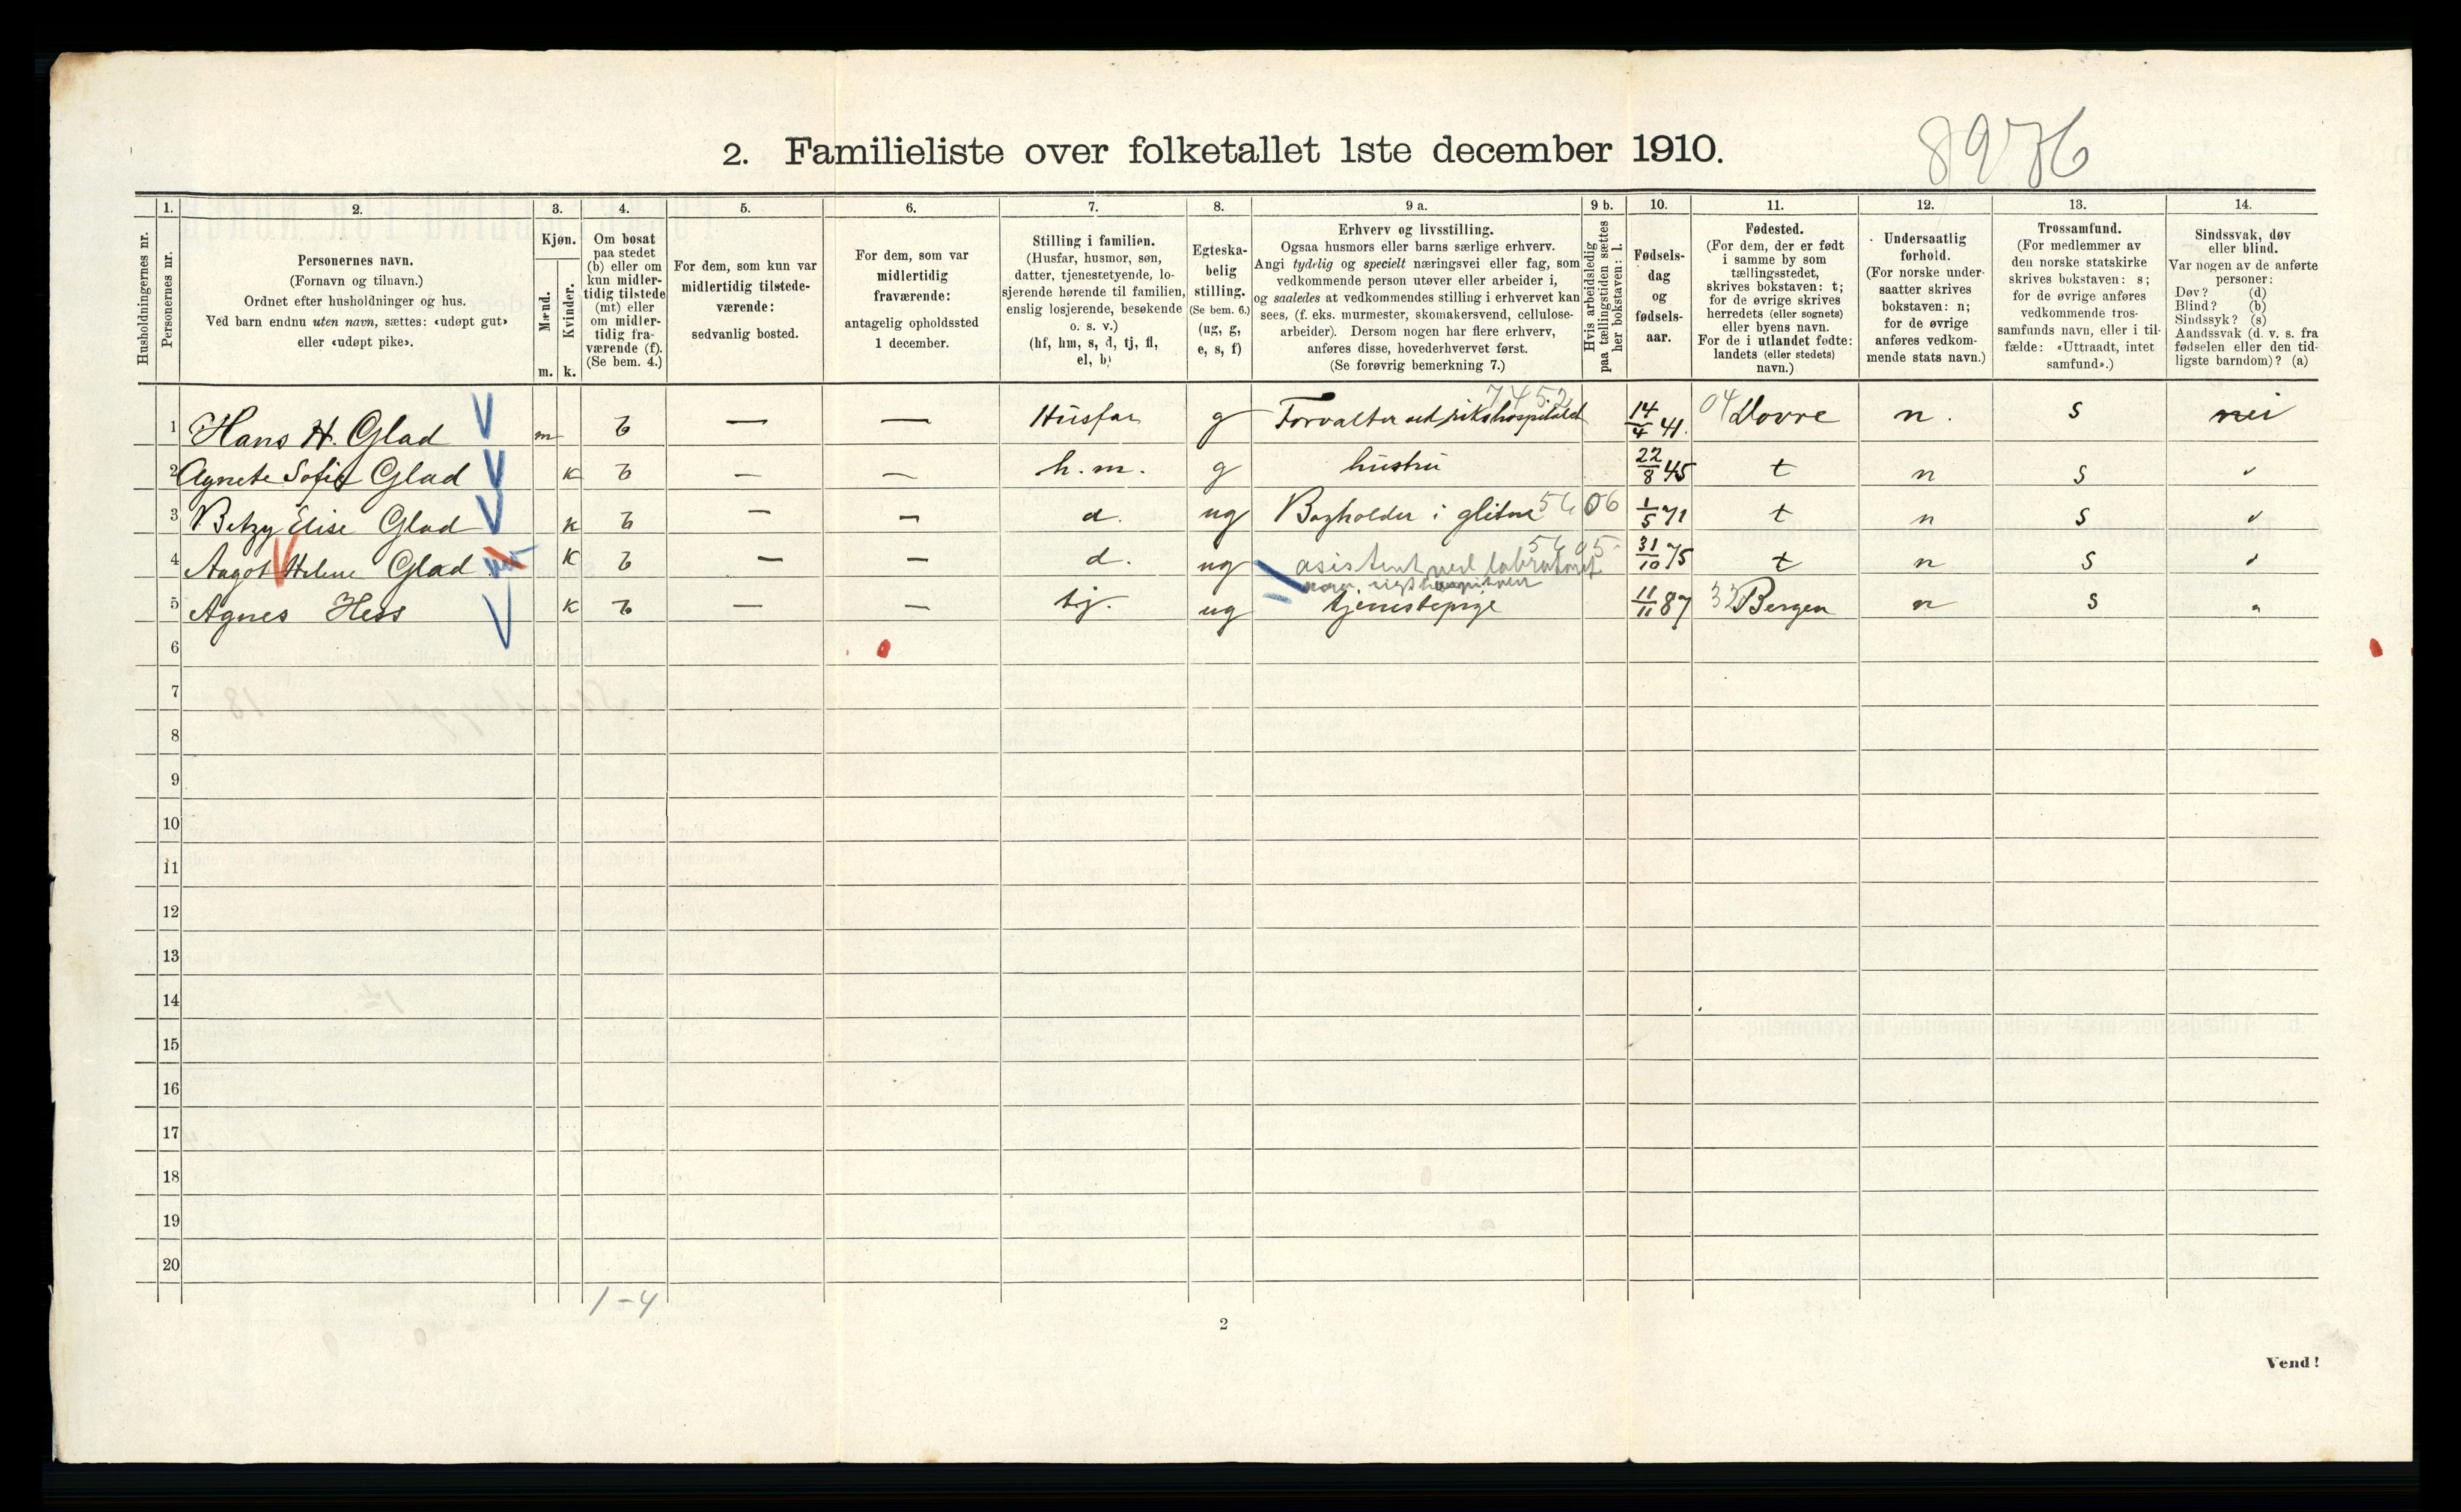 8976
2. Familieliste over folketallet 1ste december 1910.
1. 2. 3. 4. 5. 6. 7. 8. 9 a. 9 b. 10. 11. 12. 13. 14.
Husholdningernes nr.
Personernes nr.
Personernes navn.
(Fornavn og tilnavn.)
Ordnet efter husholdninger og hus.
Ved barn endnu uten navn, sættes: «udøpt gut»
eller «udøpt pike».
Kjøn.
Mænd.
Kvinder.
m. k.
Om bosat
paa stedet
(b) eller om
kun midler-
tidig tilstede
(mt) eller
om midler-
tidig fra-
værende (f).
(Se bem. 4.)
For dem, som kun var
midlertidig tilstede-
værende:
sedvanlig bosted.
For dem, som var
midlertidig
fraværende:
antagelig opholdssted
1 december.
Stilling i familien.
(Husfar, husmor, søn,
datter, tjenestetyende, lo-
sjerende hørende til familien,
enslig losjerende, besøkende
o. s. v.)
(hf, hm, s, d, tj, fl,
el, b)
Egteska-
belig
stilling.
(Se bem. 6.)
(ug, g,
e, s, f)
Erhverv og livsstilling.
Ogsaa husmors eller barns særlige erhverv.
Angi tydelig og specielt næringsvei eller fag, som
vedkommende person utøver eller arbeider i,
og saaledes at vedkommendes stilling i erhvervet kan
sees, (f. eks. murmester, skomakersvend, cellulose-
arbeider). Dersom nogen har flere erhverv,
anføres disse, hovederhvervet først.
(Se forøvrig bemerkning 7.)
Hvis arbeidsledig
paa tællingstiden sættes
her bokstaven: l.
Fødsels-
dag
og
fødsels-
aar.
Fødested.
(For dem, der er født
i samme by som
tællingsstedet,
skrives bokstaven: t;
for de øvrige skrives
herredets (eller sognets)
eller byens navn.
For de i utlandet fødte:
landets (eller stedets)
navn.)
Undersaatlig
forhold.
(For norske under-
saatter skrives
bokstaven: n;
for de øvrige
anføres vedkom-
mende stats navn.)
Trossamfund.
(For medlemmer av
den norske statskirke
skrives bokstaven: s;
for de øvrige anføres
vedkommende tros-
samfunds navn, eller i til-
fælde: «Uttraadt, intet
samfund».)
Sindssvak, døv
eller blind.
Var nogen av de anførte
personer:
Døv? (d)
Blind? (b)
Sindssyk? (s)
Aandssvak (d. v. s. fra
fødselen eller den tid-
ligste barndom)? (a)
7452
1 Hans H. Glad m b — — Husfar g Forvalter ved rikshospitalet 14/4 41. 04 Dovre n. s nei
2 Agnete Sofie Glad k b — — h.m. g hustru 22/8 45 t n s
3 Betzy Elise Glad k b — — d. ug Bogholder i glitne 5606 1/5 71 t n s
5605
4 Aagot Helene Glad k b — — d. ug asistent ved labratoriet 31/10 75 t n s
5 Agnes Hess k b — — tj. ug tjenestepige 11/11 87 Bergen n s
6
7
8
9
10
11
12
13
14
15
16
17
18
19
20
1-4
2
Vend!